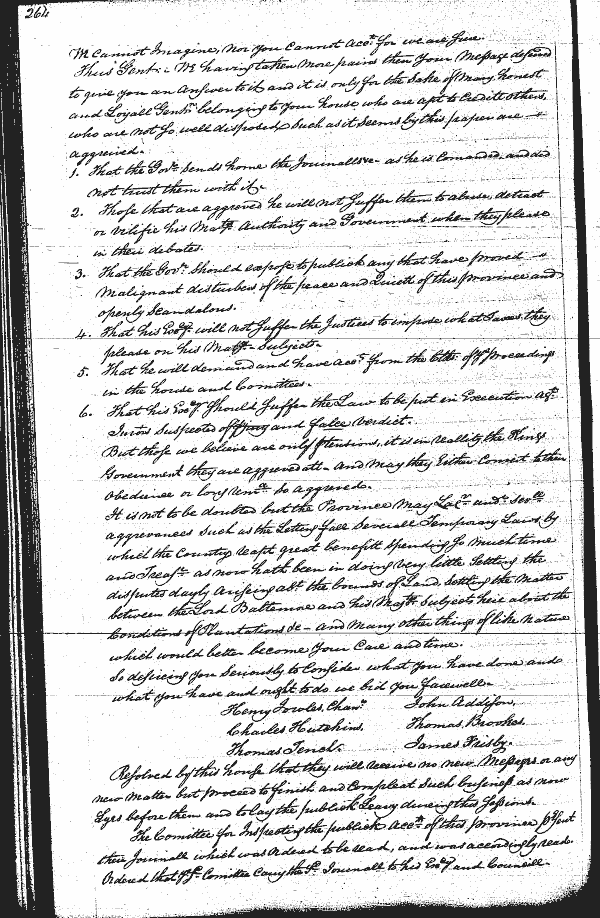 264
We cannot Imagine, nor you cannot acct. for we are sure.
This Gent:— We having taken more pains then your Message desired
to give you an answer to it and it is only for the sake of many honest
and Loyall Gentn. belonging to your house who are apt to Credit others,
who are not so well disposed, Such as it seems by this paper are
aggreived.
1. That the Govr. sends home the Journalls &c as he is comanded, and did
not trust them with it.
2. Those that are aggreved he will not suffer them to abuse, detract
or vilifie his Matys. Authority and Government when they please
in their debates.
3. That the Govr. should expose to publick any that have proved
Malignant disturbers of the peace and Quiett of this Province and
openly Scandalous.
4. That his Excy. will not suffer the Justices to impose what Taxes they
please on his Matys. Subjects.
5. That he will demand and have acct. from the Clke. of ye proceedings
in the house and Comittees.
6. That his Excy. should suffer the Law to be put in Execution agt.
Jurors suspected of and false verdict.
But those we believe are only ptensions, it is in reallity the Kings
Government they are aggreved att. And may they Either Connect to their
obedience or long so aggreved.
It is not to be doubted but the Province may and
aggrevances such as the Letting fall severall Temporary Laws by
which the Country reapt great benefitt spending so much time
and Treasr. as now hath been in doing very little Settling the
disputes dayly Ariseing abt. the bounds of Land, settling the Matter
between the Lord Baltemore and his Matys. Subjects here about the
Conditions of Plantations &c— and Many other things of like nature
which would better become your Care and time.
So desireing you Seriously to Consider what you have done and
what you have and ought to do we bid you farewell.
Henry Jowles, Chanr. John Addison,
Charles Hutchins, Thomas Brookes,
Thomas Tench. James Frisby.
Resolved by this house that they will receive no new Messages or any
new Matter but proceed to finish and Compleat Such business as now
Lyes before them and to lay the publick Leavy dureing this Sessions.
The Comittee for Inspecting the publick Acctt. of this province psent
their Journall which was Ordered to be read, and was accordingly read.
Ordered that ye sd. Comittee Carry the sd. Journall to his Excy. and Councill.